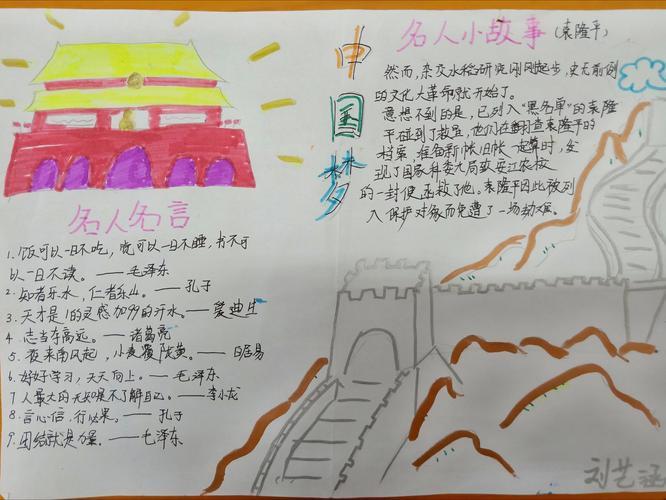 中国梦
名人小故事(袁隆平)
然而,杂交水稻研究刚刚起步,史无前例
的文化大革命就开始了。
意想不到的是,已列入“黑名单”的袁隆
平碰到了救星,他们在翻查袁隆平的
档案,准备新帐旧帐一起算时,发
现了国家科委九局致安江农校
的一封便函救了他。袁隆平因此被列
入保护对象而免遭了一场劫难。
名人名言
1.饭可以一日不吃,觉可以一日不睡,书不可
以一日不读。——毛泽东
2.知者乐水,仁者乐山。——孔子
3.天才是1的灵感加99的汗水。——爱迪生
4.志当存高远。——诸葛亮
5.夜来南风起,小麦覆陇黄。——白居易
6.好好学习,天天向上。——毛泽东
7.人最大的无知是不了解自己。——李小龙
8.言必信,行必果。——孔子
9.团结就是力量。——毛泽东
刘艺涵